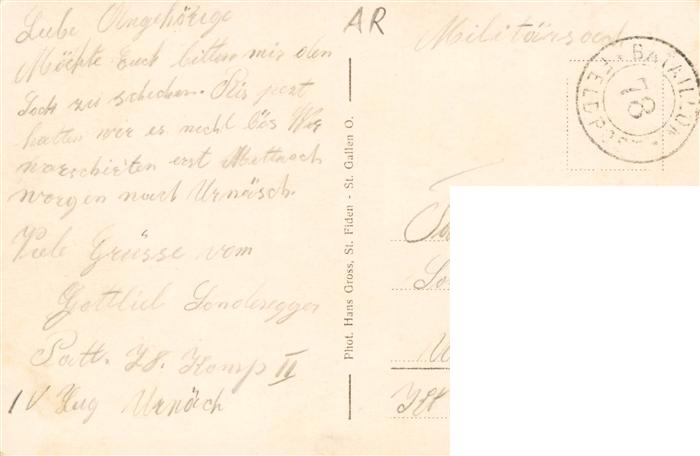 Liebe Angehörige
Möchte Euch bitten mir den
Sack zu schicken. Bis jezt
hatten wir es nicht bös Wir
marschieren erst Mittwoch
morgen nach Urnäsch.
Viele Grüsse vom
Gottlieb Sonderegger
Batt. 78. Komp II
IV Zug Urnäch
AR
Phot. Hans Gross, St. Fiden - St. Gallen O.
Militärsach
BATAILLON 78
FELDPOST